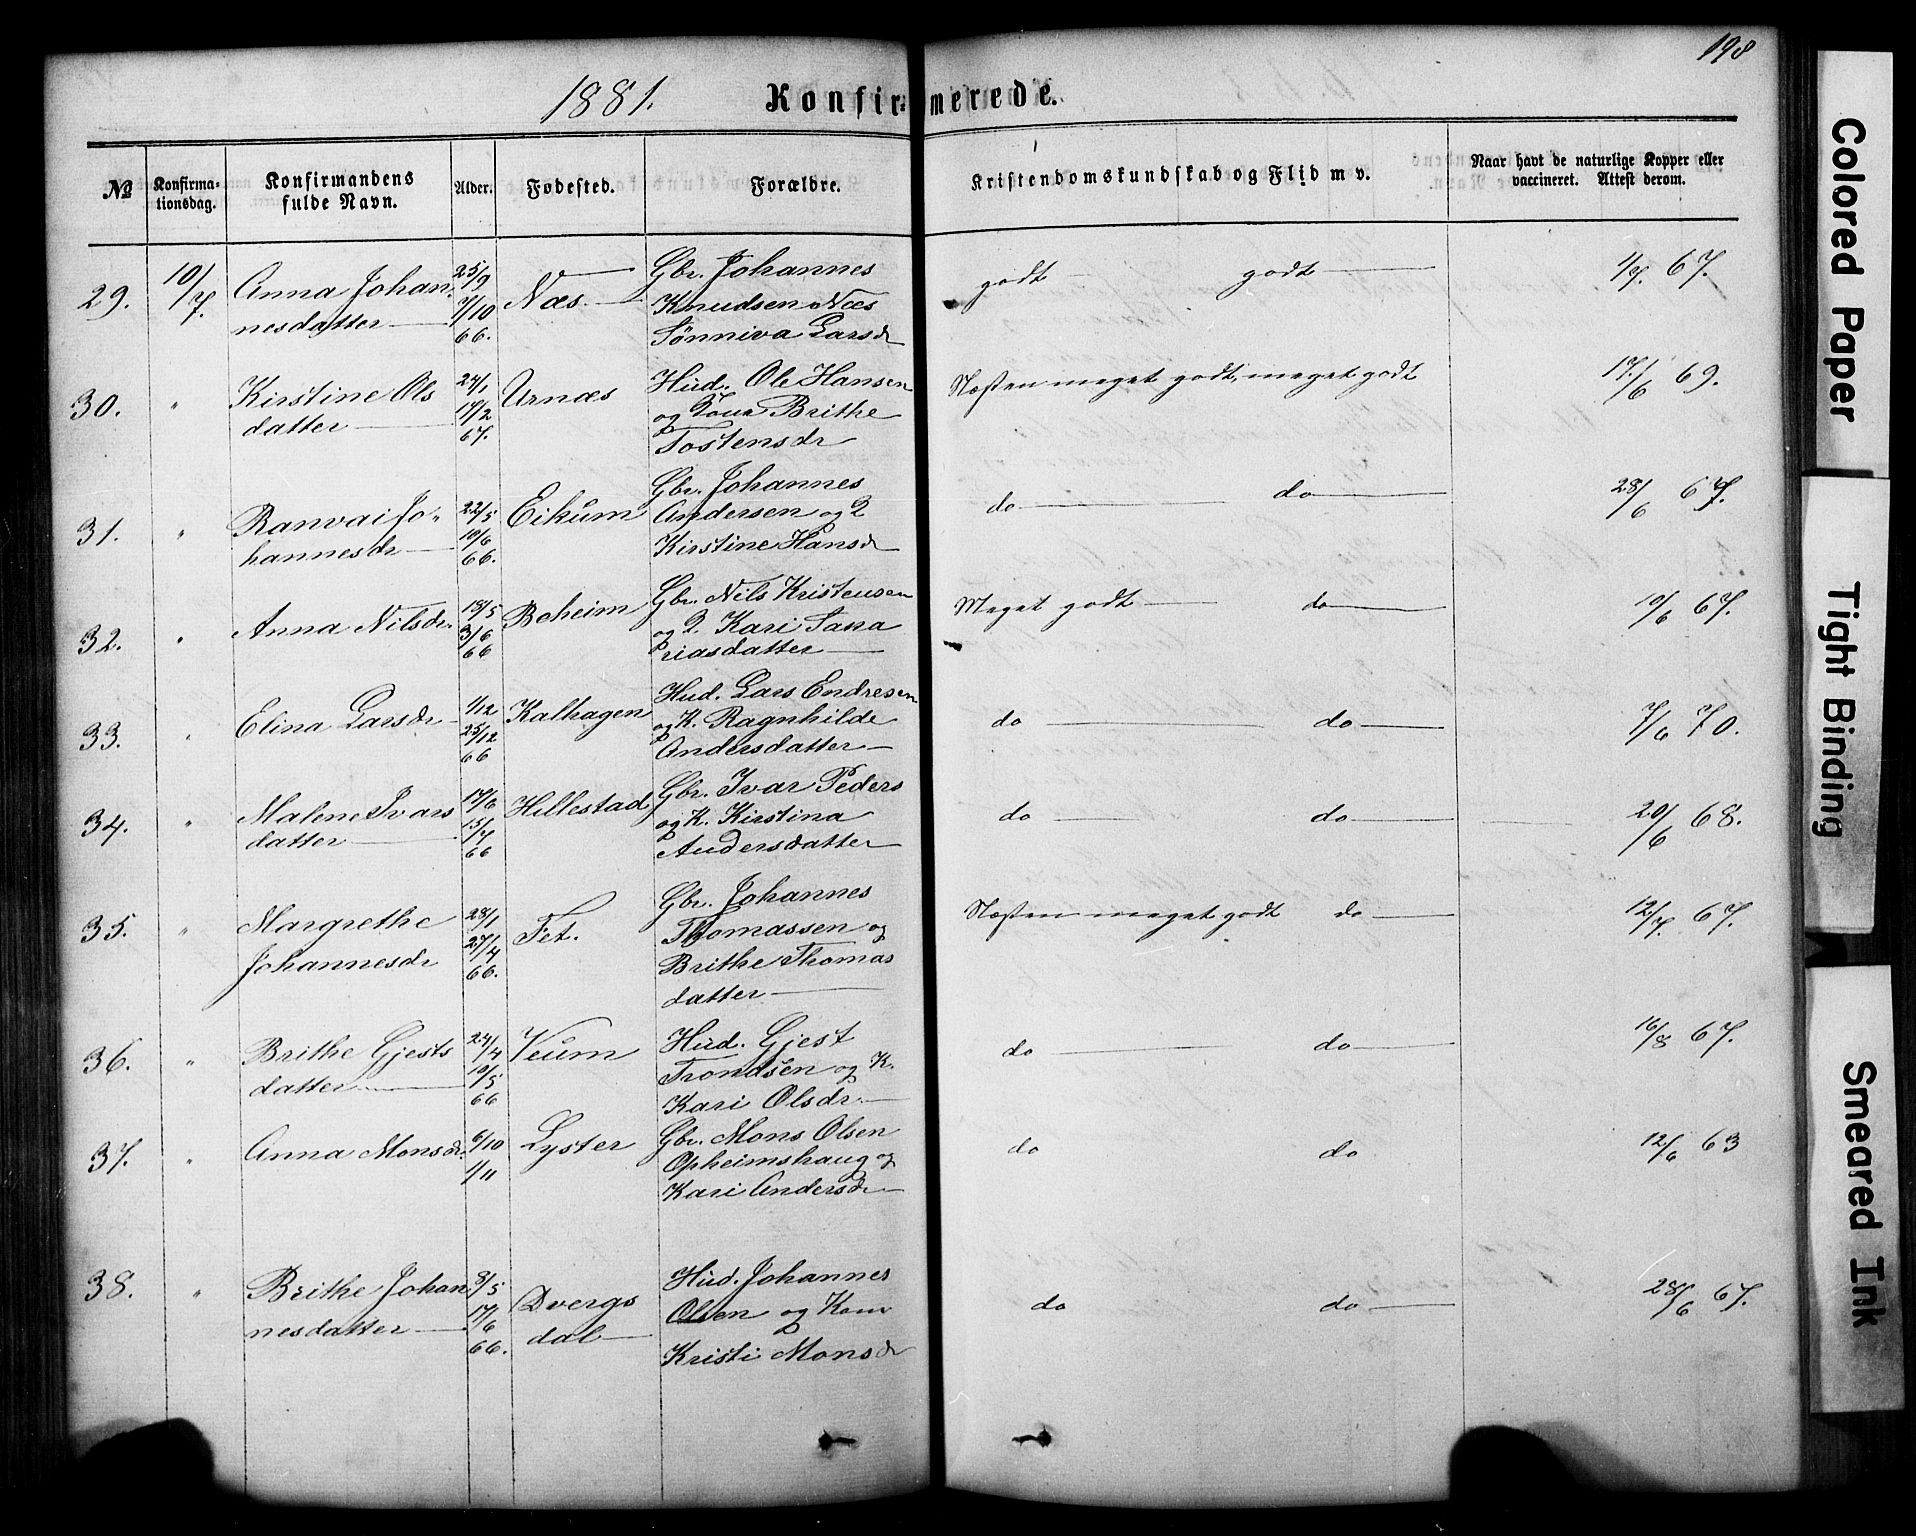 198
1881. Konfirmerede.
№ Konfirmationsdag. Konfirmandens fulde Navn. Alder. Fødested. Forældre. Kristendomskundskab og Flid m v. Naar havt de naturlige Kopper eller vaccineret. Attest derom.
29. 10/7. Anna Johan- 25/9 Næs. Gbr. Johannes godt godt 1/7. 67.
nesdatter 7/10 Knudsen Næs
66. Sønniva Larsdr
30. " Kirstine Ols 24/1 Urnæs Hud. Ole Hansen Næsten meget godt, meget godt 17/6 69.
datter 19/2 og Brithe
67. Tostensdr
31. " Ranvai Jo- 22/5 Eikum Gbr. Johannes do do 28/6 67.
hannesdr 10/6 Andersen og
66. Kirstine Hansdr
32. " Anna Nilsdr. 18/5 Beheim Gbr. Nils Kristensen Meget godt do 10/6 67.
3/6 og Kari
66 riasdatter
33. " Elina Larsdr 1/12 Kalhagen Hud. Lars Endresen do do 7/6 70.
25/12 og K. Ragnhilde
66 Andersdatter
34. " Malene Ivars 17/6 Hillestad Gbr. Ivar Peders do do 20/6 68.
datter 15/7 og K. Kirstina
66 Andersdatter
35. " Margrethe 28/1 Fet. Gbr. Johannes Næsten meget godt do 12/7. 67.
Johannesdr 27/4 Thomassen og
66. Brithe Thomas
datter
36. " Brithe Gjests 24/4 Veum Hud. Gjest do do 16/8 67.
datter 10/5 Trondsen og K.
66 Kari Olsdr.
37. " Anna Monsdr. 6/10 Lyster Gbr. Mons Olsen do do 12/6 63
1/11 Opheimshaug og
Kari Andersdr
38. " Brithe Johan 8/5 Dvergs Hud. Johannes do do 28/6 67.
nesdatter 17/6 dal Olsen og Kone
66. Kristi Monsdr
Colored Paper
Tight Binding
Smeared Ink